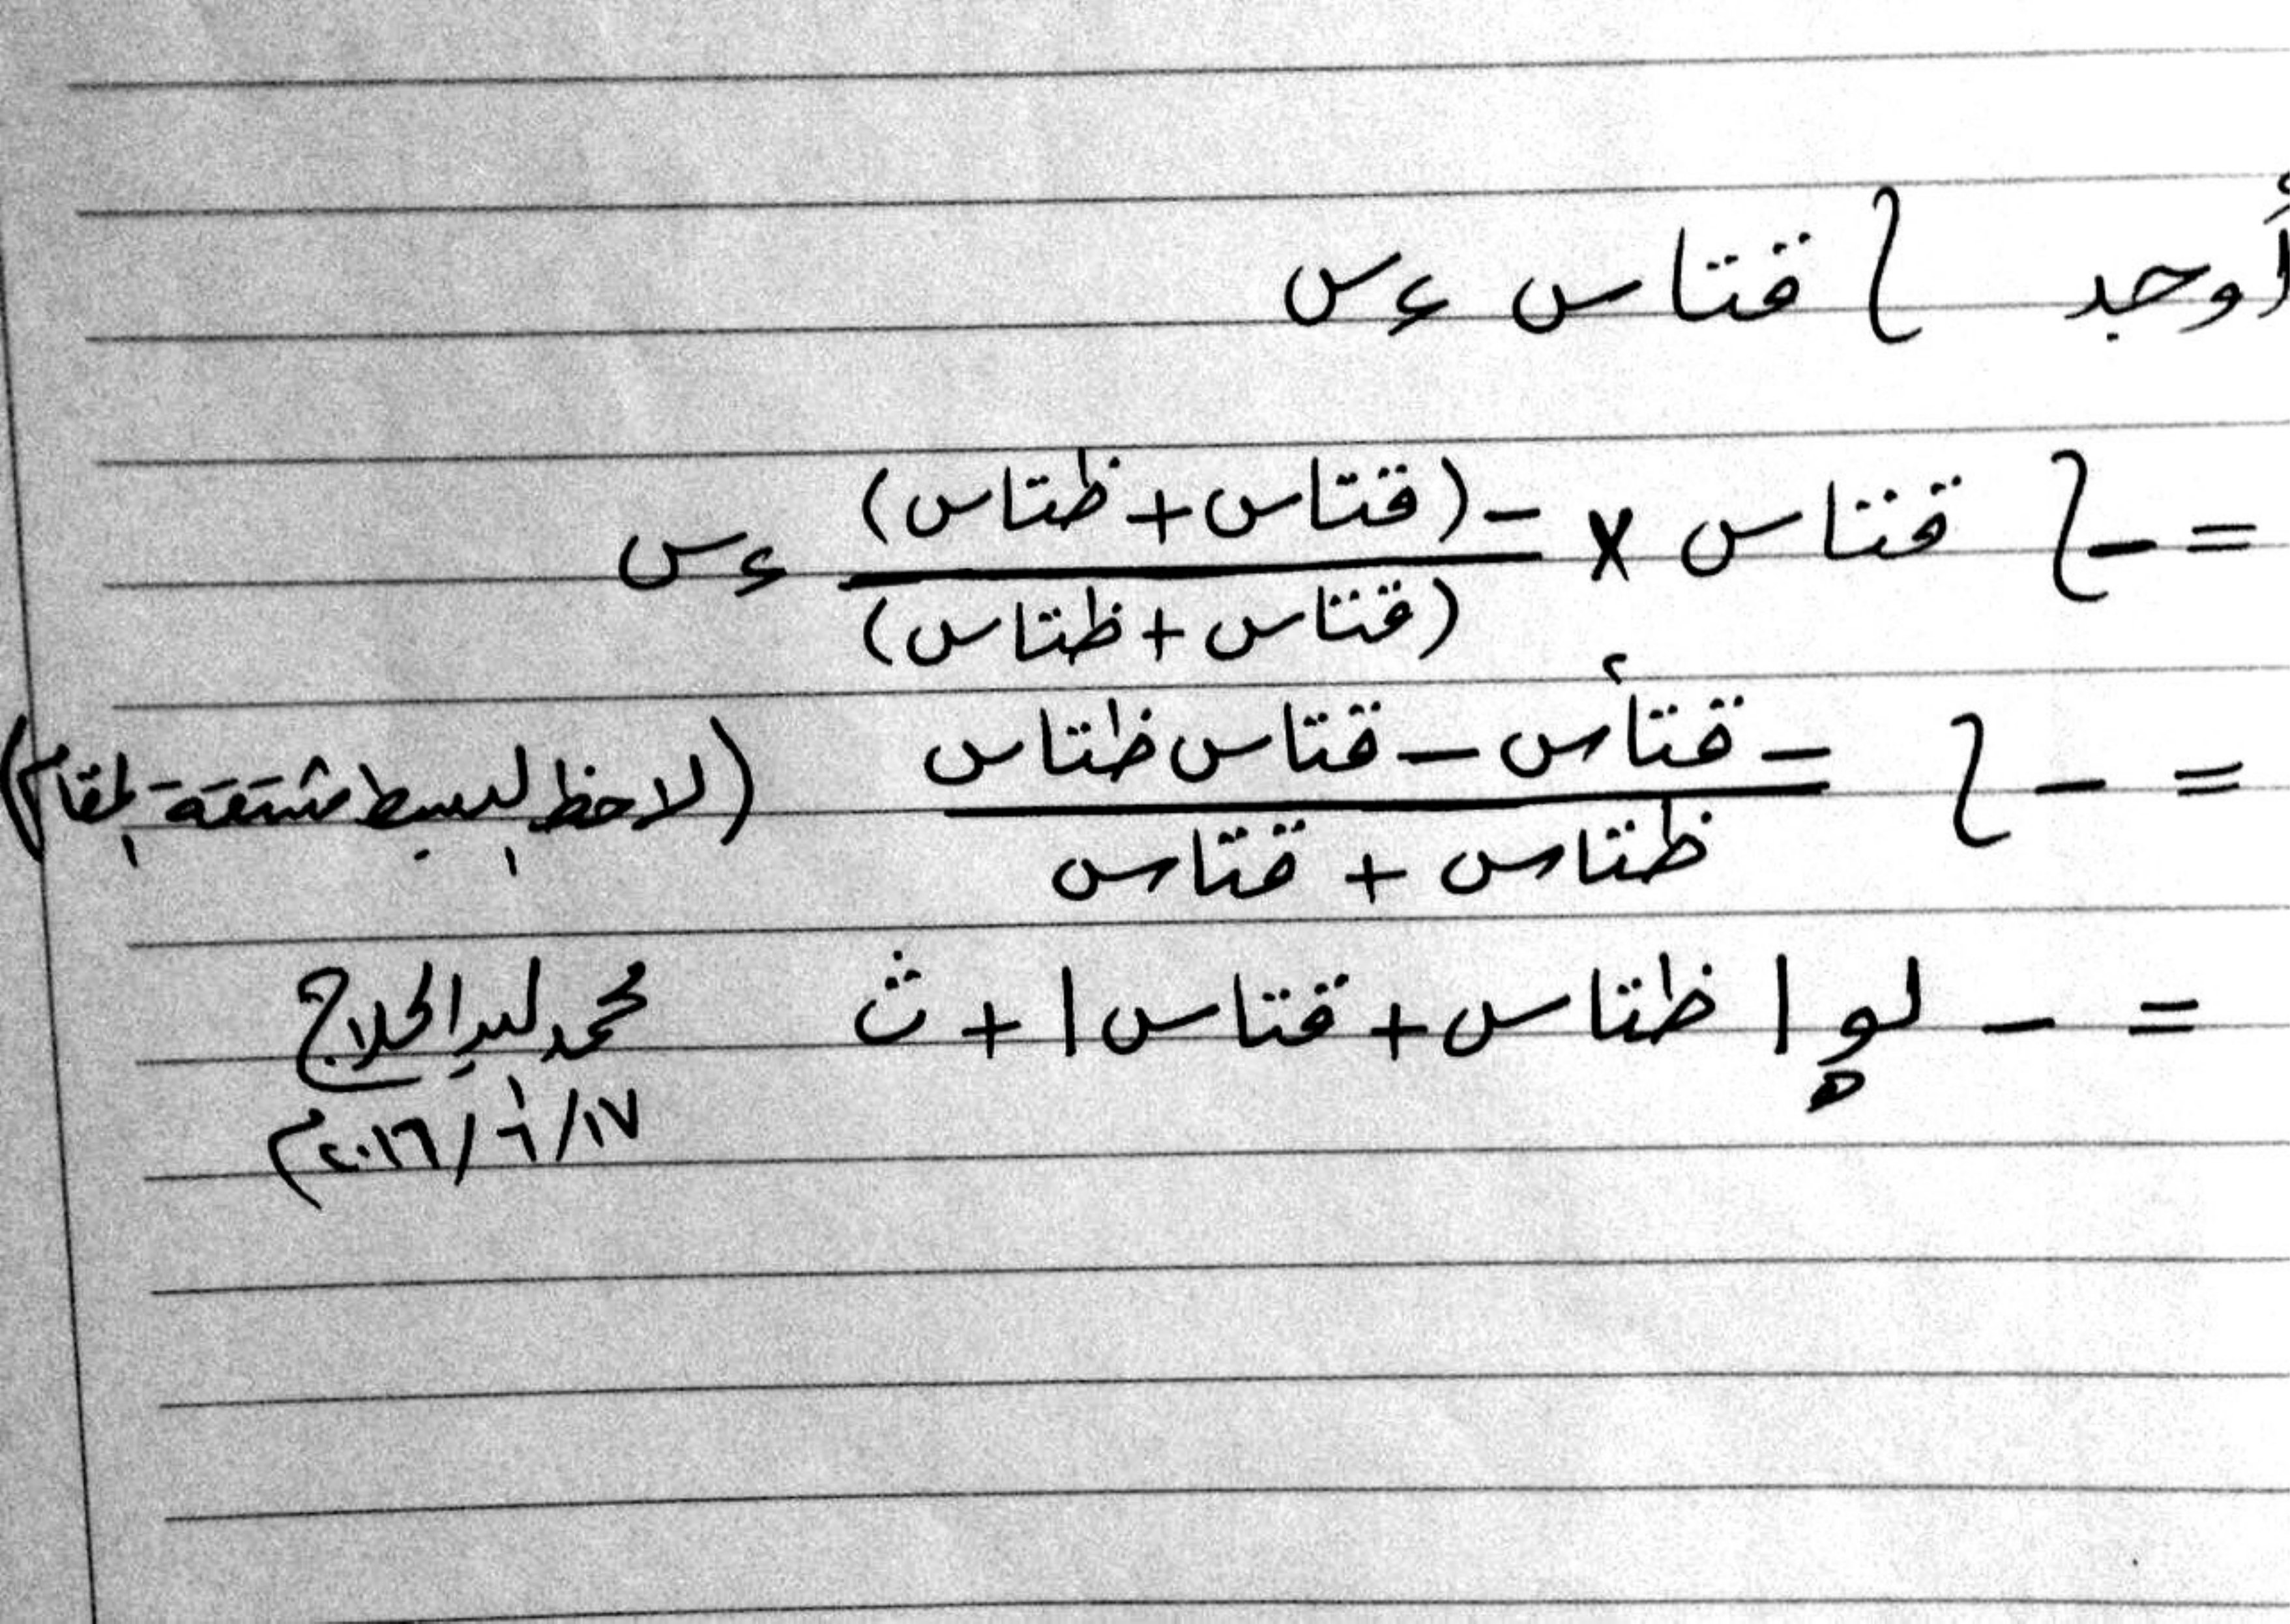 أوجد ∫ قتاس ءس
= −∫ قتاس × −(قتاس + ظتاس) / (قتاس + ظتاس) ءس
= − ∫ − قتا²س − قتاس ظتاس / ظتاس + قتاس (لاحظ البسط مشتقة المقام)
= − لوه | ظتاس + قتاس | + ث
محمد لبد الحلاج
١٧/٦/٢٠١٦م